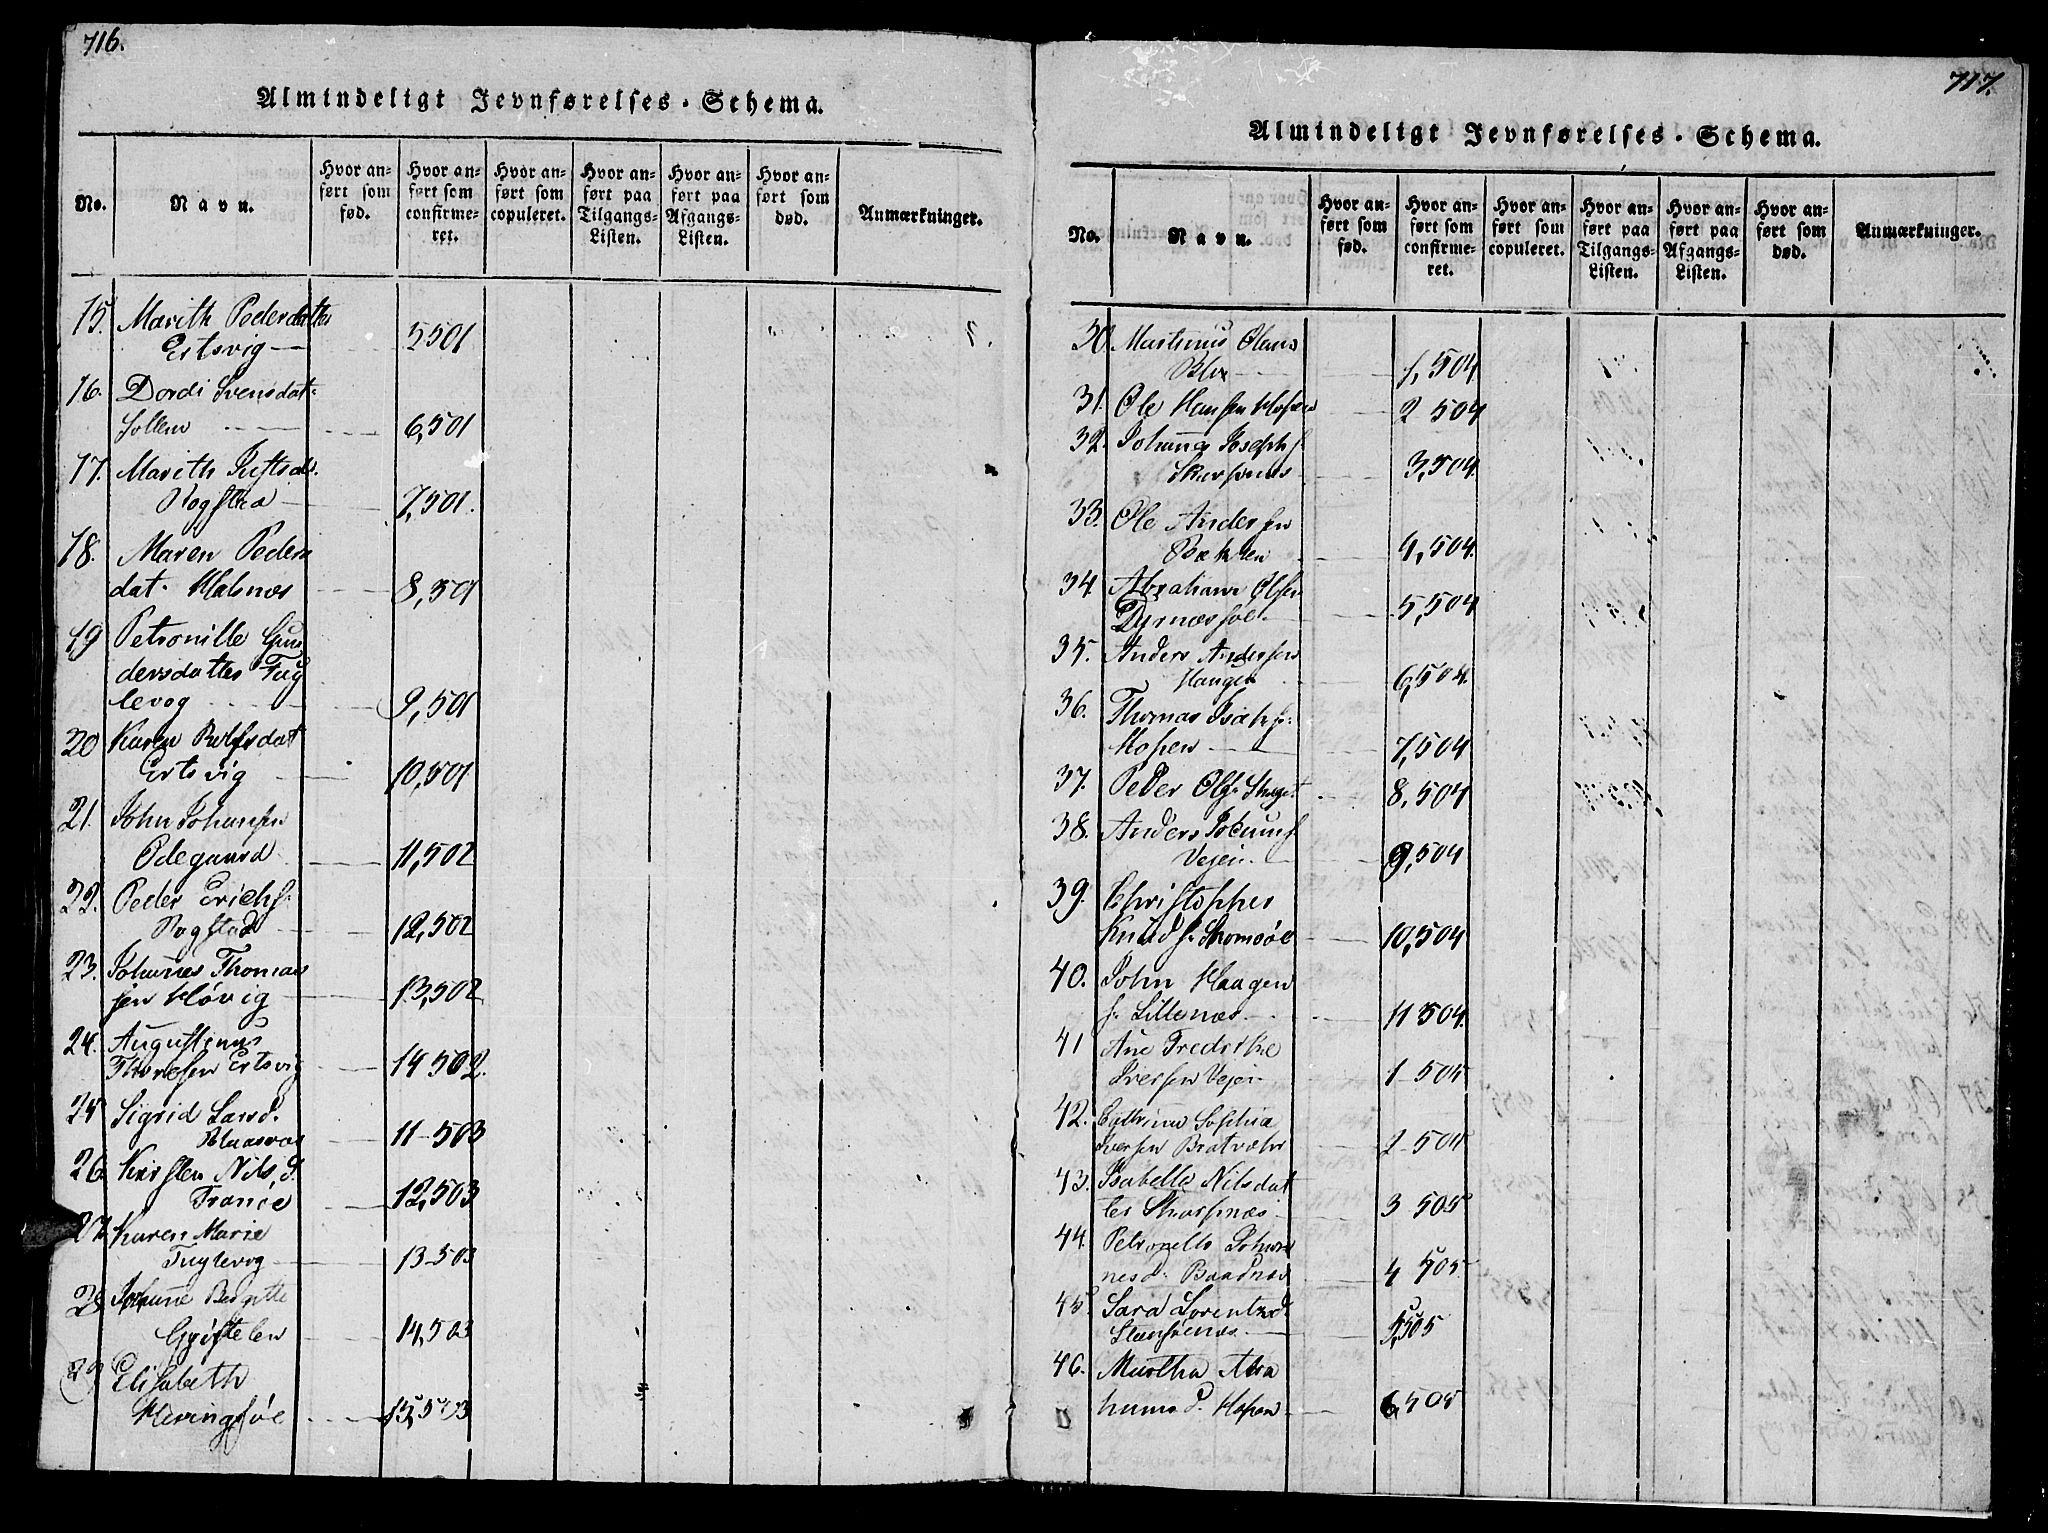 716.
Almindeligt Jevnførelses-Schema.
No. Navn. Hvor anført som fød. Hvor anført som confirmeret. Hvor anført som copuleret. Hvor anført paa Tilgangs-Listen. Hvor anført paa Afgangs-Listen. Hvor anført som død. Anmærkninger.
15. Marith Pedersdatter
Ertsvig 5501
16. Dordi Svensdat:
Sollem 6,501
17. Marith
Rogstad 7,501.
18. Maren Peders
dat. Halsnæs 8,501
19 Petronille Gun
dersdatter Fug
levog 9,501
20 Karen Rolfsdat
Ertsvig 10,501
21. John Johansen
Ødegaard 11,502
22. Peder Erichs.
Rogstad 12,502
23. Johannes Thomas
sen Høvig 13,502
24. Augustinus
Thoresen Ertsvig 14 502.
25 Sigrid Larsd.
11-503
26 Kirsten Nils.d.
12,503
27 Karen Marie
Fuglevog 13-503
28 Johanne Bergitte
Gjøstelen 14,503
29 Elisabeth
15,503
717.
Almindeligt Jevnførelses-Schema.
No. Navn. Hvor anført som fød. Hvor anført som confirmeret. Hvor anført som copuleret. Hvor anført paa Tilgangs-Listen. Hvor anført paa Afgangs-Listen. Hvor anført som død. Anmærkninger.
30. Martinus Olaus
1,504
31. Ole Hansen Hopen 2 504
32. Johannes Josephs.
Skarsenæs 3,504.
33. Ole Andersen
Bækken 4,504.
34. Abraham Olsen
Dyrnæssøe 5,504
35. Anders Andersen
Haugen 6,504.
36. Thomas Isachs:
Hopen 7,504
37. Peder Ols. 8,504
38. Anders Jocums.
Vejen 9,504
39. Christopher
Knuds. 10,504
40. John Haagen
s. Lillenæs 11 504.
41 Ane Frederike
Iversen Vejen 1-505
42. Cathrina Sophia
Iversen Bratvæhr 2-505
43. Isabella Nilsdat
ter Skarsenæs 3 505
44. Petronelle Johan
nesd. Baadnæs 4 505
45. Sara Lorentzd.
Stensønæs 5,505
46. Martha Abra
hamsd. Hopen 6,505